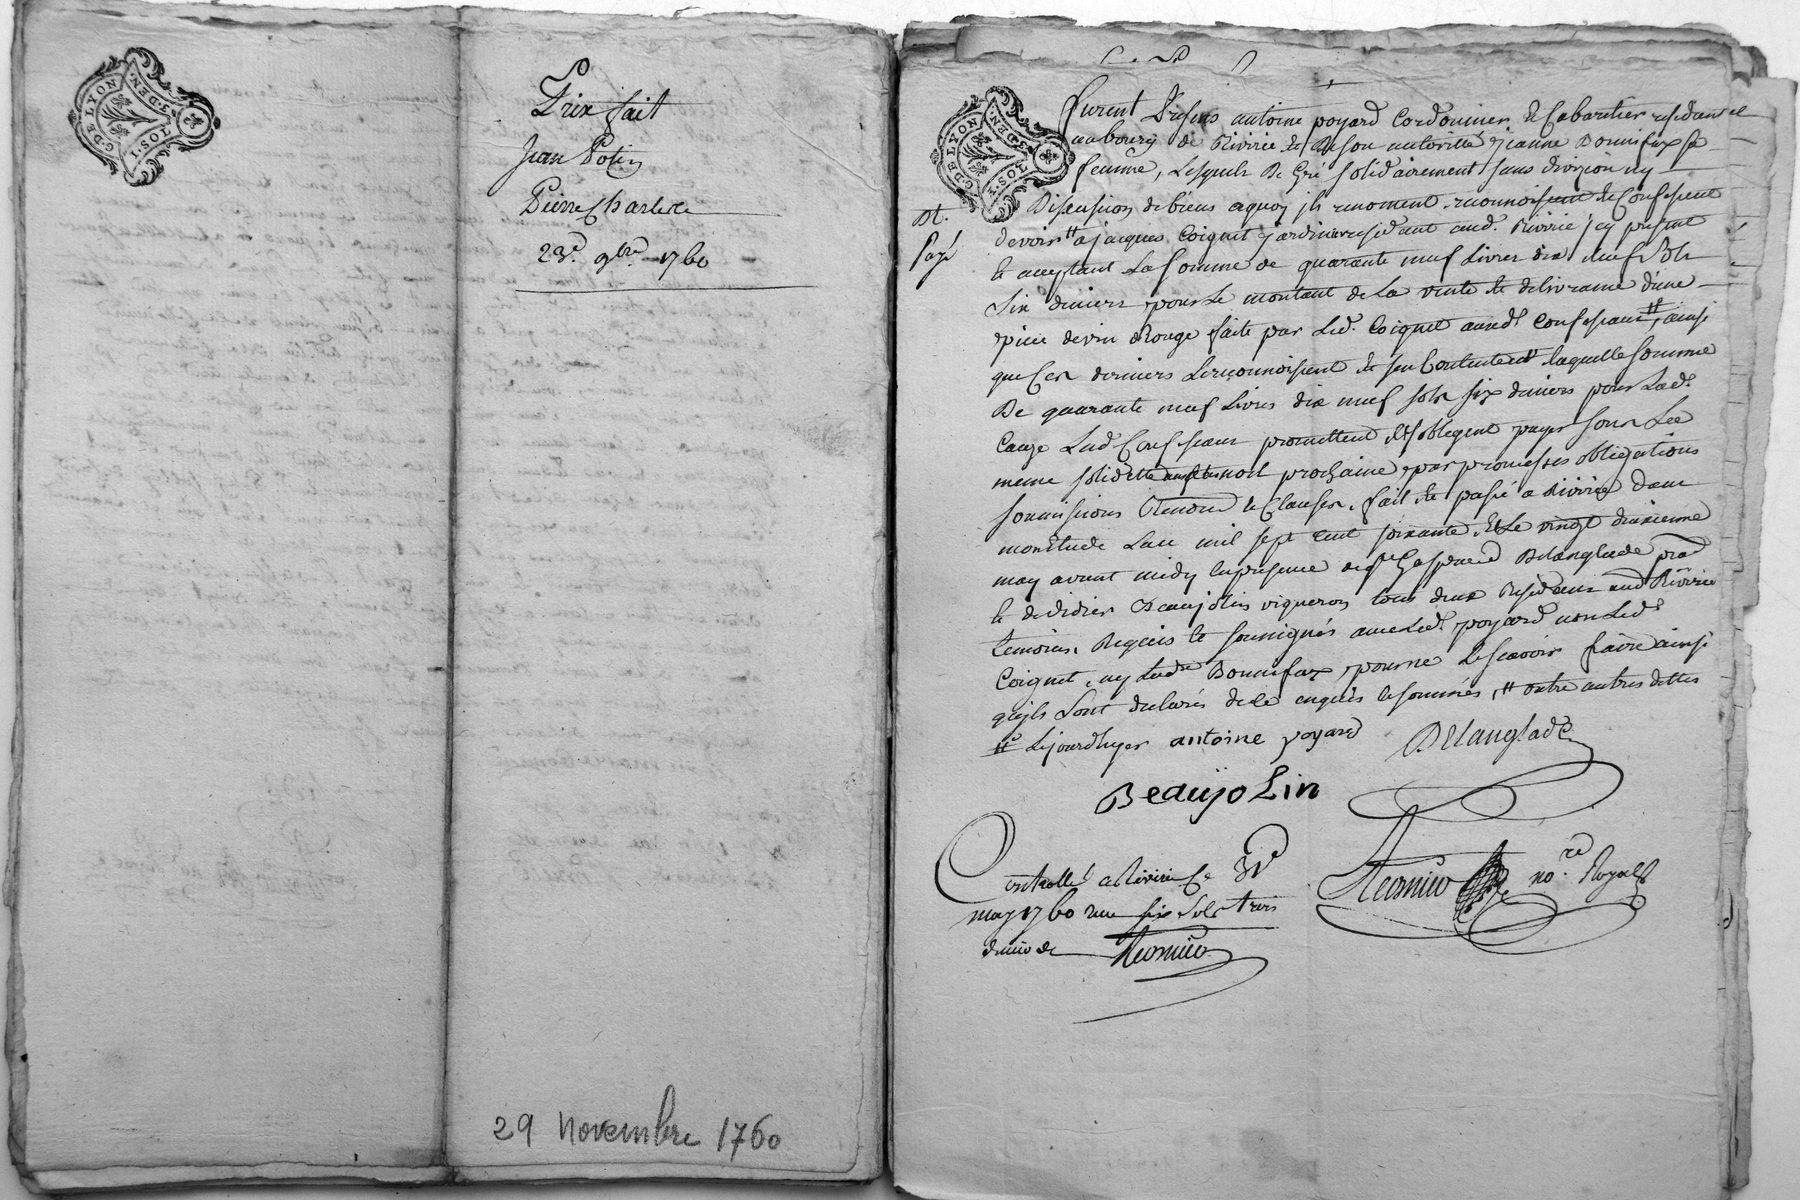 G. DE LYON
1. SOL 3. DEN.
Prix fait
Jean Potin
Pierre Charlere
23e. 9bre. 1760
29 novembre 1760
G. DE LYON
1. SOL 3. DEN.
furent presens antoine poyard Cordonnier et Cabaretier residant et
au bourg de Riverie et de son autoritté jeanne Bonnifax sa
femme, Lesquels De Gré solidairement sans division ny
Discussion de biens a quoy ils renoncent reconnoissent et Confessent
devoir # a jacques Coignet jardinier residant aud. Riverie icy present
et acceptant La somme de quarante neuf Livres dix neuf sols
six deniers pour Le montant de La vente et delivrance d'une
piece de vin Rouge faite par Led. Coignet auxds. Confessans #, ainsi
que Ces derniers Le reconnoissent et s'en Contentent laquelle somme
De quarante neuf Livres dix neuf sols six deniers pour Lade.
Cauze Lesd. Confessans promettent et s'obligent payer sous La
meme soliditté a la noel prochaine par promesses obligations
soumissions Renon. et Clauses, fait et passé a Riverie dans
mon Etude L'an mil sept cent soixante, Et Le vingt deuxieme
may avant midy en presence de sr. Gasparde Delanglade prat.
et de didier Beaujolin vigneron tous deux Residans aud. Riverie
temoins Requis et soussignés avec Led. poyard non Led.
Coignet, ny Lade. Bonnifax, pour ne Le scavoir faire ainsi
qu'ils L'ont declarés de ce enquis et sommés, # outre autres dettes
# Lejourdhuy antoine poyard Delanglade
Dt.
Payé
Beaujolin
Controllé a Riverie Ce 31e
may 1760 recu six sols trois
deniers
no.re Royal